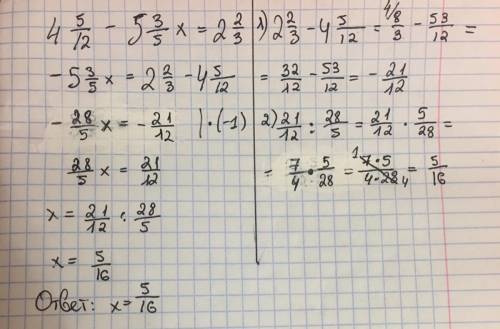 4 5/12 - 5 3/5 x = 2 2/3
- 5 3/5 x = 2 2/3 - 4 5/12
- 28/5 x = - 21/12 | · (-1)
28/5 x = 21/12
x = 21/12 : 28/5
x = 5/16
Ответ: x = 5/16
1) 2 2/3 - 4 5/12 = 4/ 8/3 - 53/12 =
= 32/12 - 53/12 = - 21/12
2) 21/12 : 28/5 = 21/12 · 5/28 =
= 7/4 · 5/28 = 1 7·5/4·28 4 = 5/16